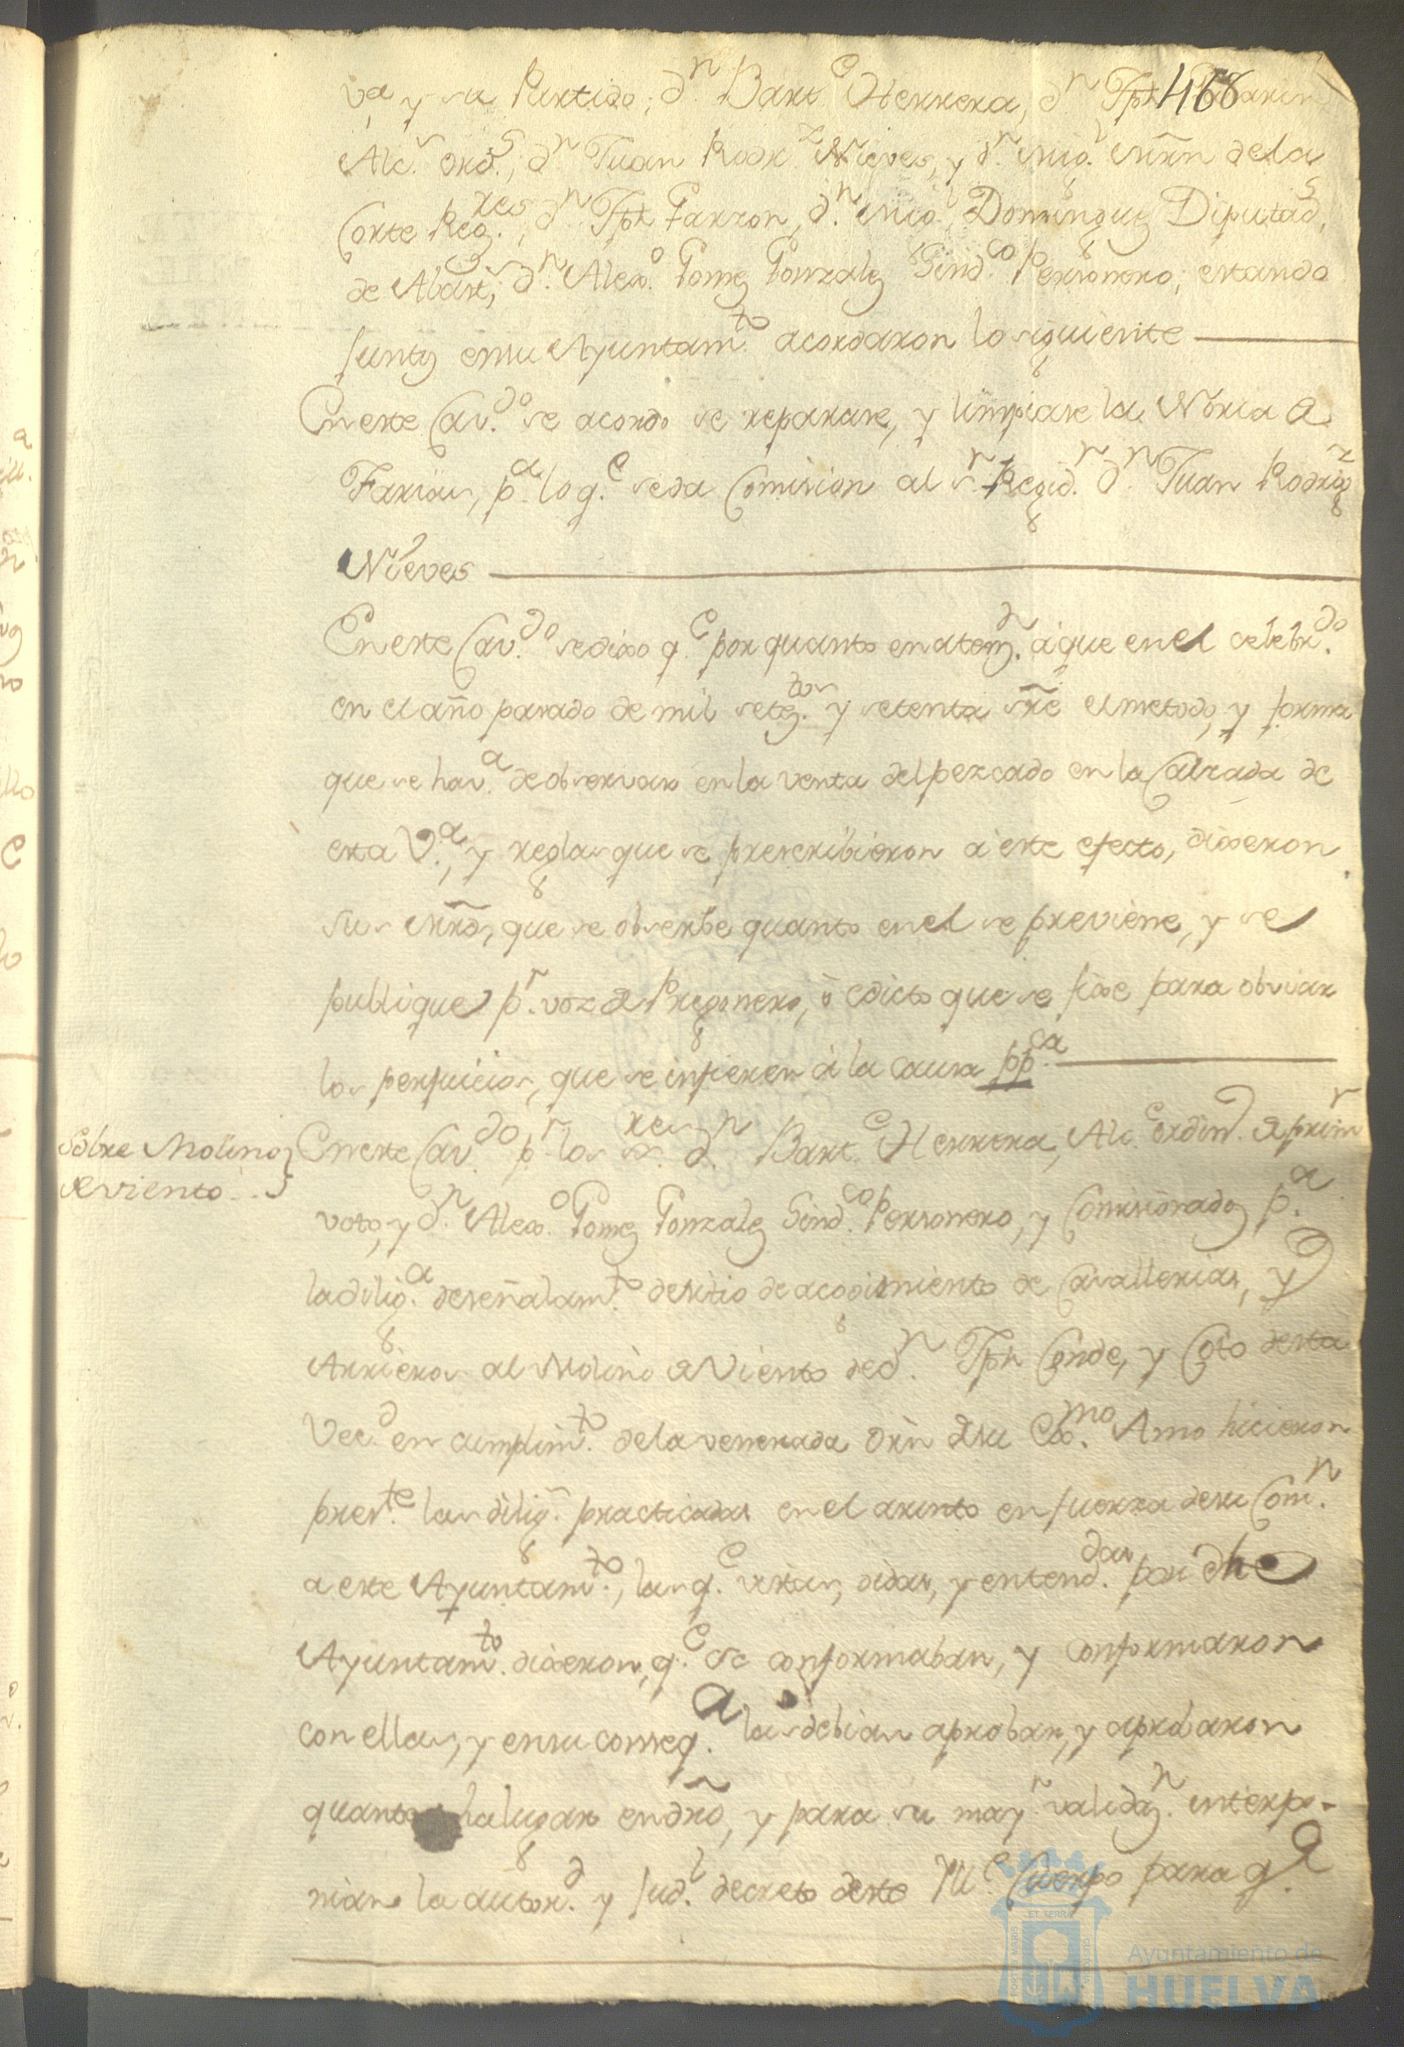 468
V.ª y su Partido; d.n Bart.e Herrera, d.n Jph
Alc.s ord.s, d.n Juan Rodr.z Nieves, y d.n Mig.l Mrñ dela
Corte Reg.res, d.n Jph Garzon, d.n Mig.l Doming.uez Diputad.s
de Abast.s, d.n Alexo. Gomez Gonzalez Sind.co Personero; estando
juntos ensu Ayuntam.to acordaron lo siguiente
En este Cav.do se acordo se reparase, y limpiase la Noria de
Farias, p.a lo q.e seda Comision al s.r Regid.r d.n Juan Rodrig.z
Nieves
En este Cav.do sedixo q.e por quanto en atenz.n á que en el celebr.do
en el año pasado de mil setez.tos y setenta sre el metodo, y forma
que se hav.a de observar en la venta del pezcado en la Calzada de
esta V.a, y reglas que se prescribieron á este efecto, dixeron
sus Mrds, que se observe quanto en el se previene, y se
publique p.r voz de Pregonero, ó edicto que se fixe para obviar
los perjuicios, que se infieren á la causa pp.ca
Sobre Molino
de viento
En este Cav.do p.r los s.res d.n Bart.e Herrera, Alc.e ordin.o de prim.r
voto, y d.n Alexo. Gomez Gonzalez Sind.co Personero, y Comisionados p.a
la dilig.a de señalam.to de sitio de acogimiento de Cavallerias, y
Arrieros al Molino de Viento de d.n Jph Conde, y Coto desta
Vec.d en cumplim.to dela venerada orn de su Ex.mo Amo hicieron
pres.te las dilig.s practicadas en el asunto en fuerza desu Com.n
a este Ayuntam.to, las q.e vistas, oidas, y entend.das por dho
Ayuntam.to dixeron, q.e se conformaban, y conformaron
con ellas, y ensu conseq.a las debian aprobar, y aprobaron
quanto ha lugar en dro, y para su may.r validaz.n interpo-
nian la autor.d y jud.l decreto deste Ill.e Cuerpo para q.e
PORTUS MARIS ET TERRAE CUSTODIA
Ayuntamiento de
HUELVA